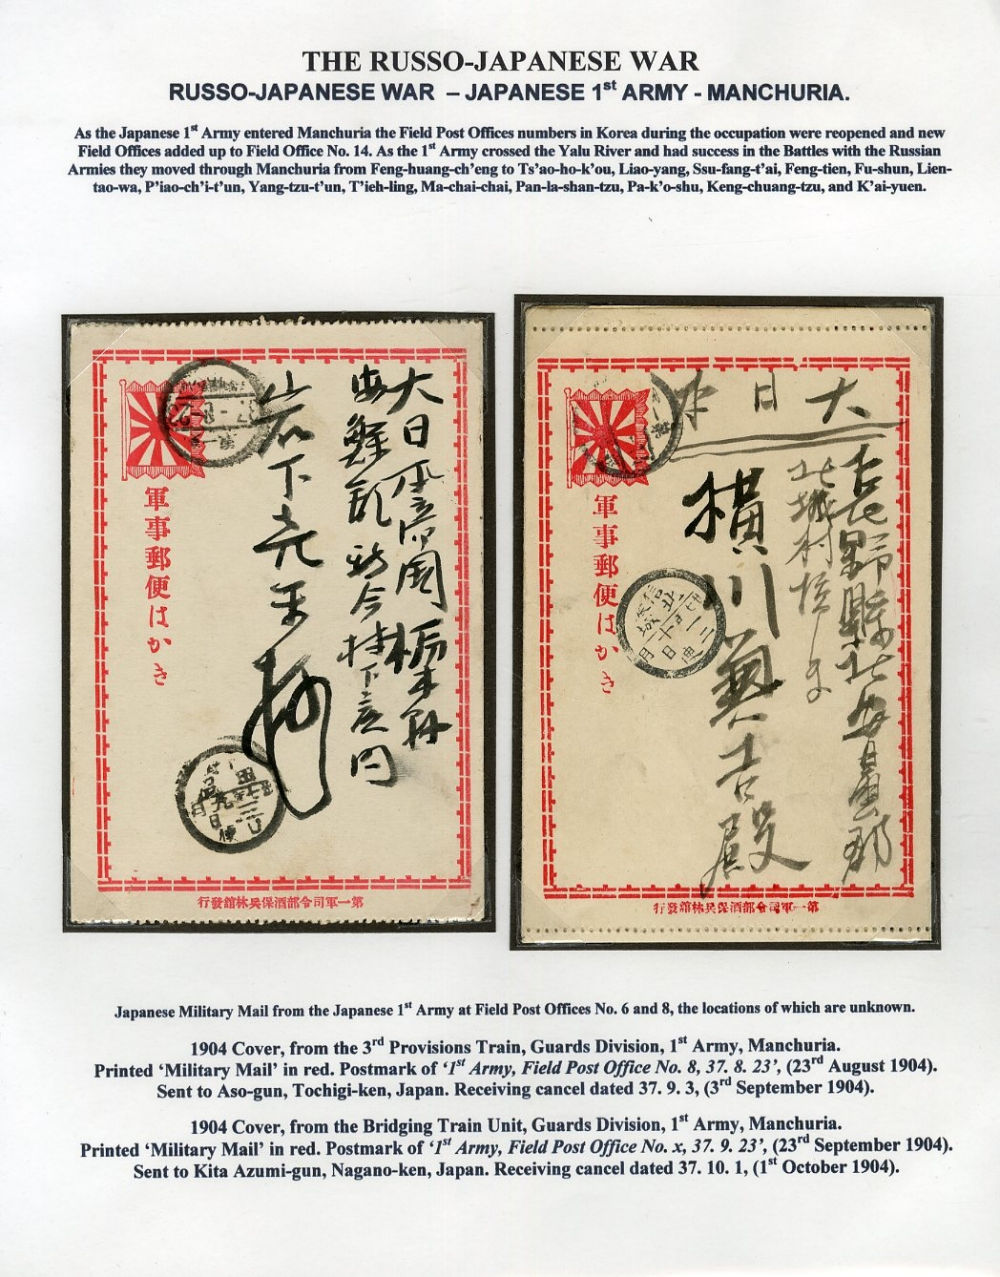 THE RUSSO-JAPANESE WAR
RUSSO-JAPANESE WAR – JAPANESE 1st ARMY - MANCHURIA.
As the Japanese 1st Army entered Manchuria the Field Post Offices numbers in Korea during the occupation were reopened and new
Field Offices added up to Field Office No. 14. As the 1st Army crossed the Yalu River and had success in the Battles with the Russian
Armies they moved through Manchuria from Feng-huang-ch'eng to Ts'ao-ho-k'ou, Liao-yang, Ssu-fang-t'ai, Feng-tien, Fu-shun, Lien-
tao-wa, P'iao-ch'i-t'un, Yang-tzu-t'un, T'ieh-ling, Ma-chai-chai, Pan-la-shan-tzu, Pa-k'o-shu, Keng-chuang-tzu, and K'ai-yuen.
大日
岩下
軍事郵便はかき
第一軍司令部酒保兵林館發行
大日本
長野縣北安曇郡
北城村
横川
吉殿
軍事郵便はかき
第一軍司令部酒保兵林館發行
Japanese Military Mail from the Japanese 1st Army at Field Post Offices No. 6 and 8, the locations of which are unknown.
1904 Cover, from the 3rd Provisions Train, Guards Division, 1st Army, Manchuria.
Printed 'Military Mail' in red. Postmark of '1st Army, Field Post Office No. 8, 37. 8. 23', (23rd August 1904).
Sent to Aso-gun, Tochigi-ken, Japan. Receiving cancel dated 37. 9. 3, (3rd September 1904).
1904 Cover, from the Bridging Train Unit, Guards Division, 1st Army, Manchuria.
Printed 'Military Mail' in red. Postmark of '1st Army, Field Post Office No. x, 37. 9. 23', (23rd September 1904).
Sent to Kita Azumi-gun, Nagano-ken, Japan. Receiving cancel dated 37. 10. 1, (1st October 1904).